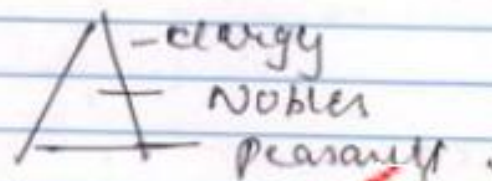 clergy
Nobles
Peasants.